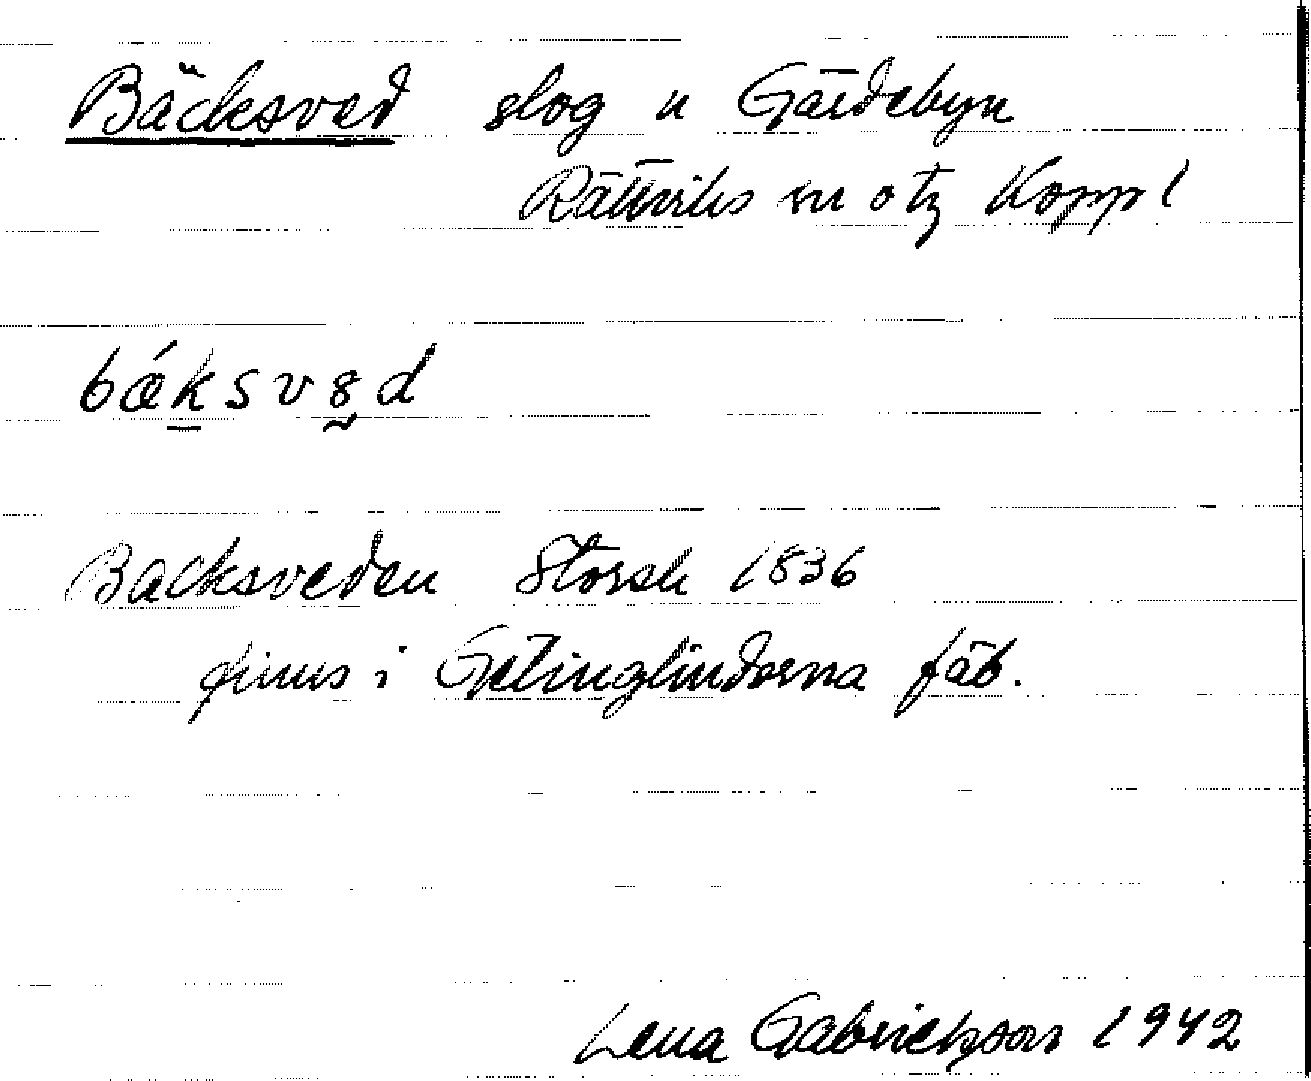 Bäcksved slog u Gärdebyn
Rättviks sn o tg Kopp l
bǽksvəd
Backsveden Storsk 1836
finns i Getinglindorna fäb.
Lena Gabrielsson 1942